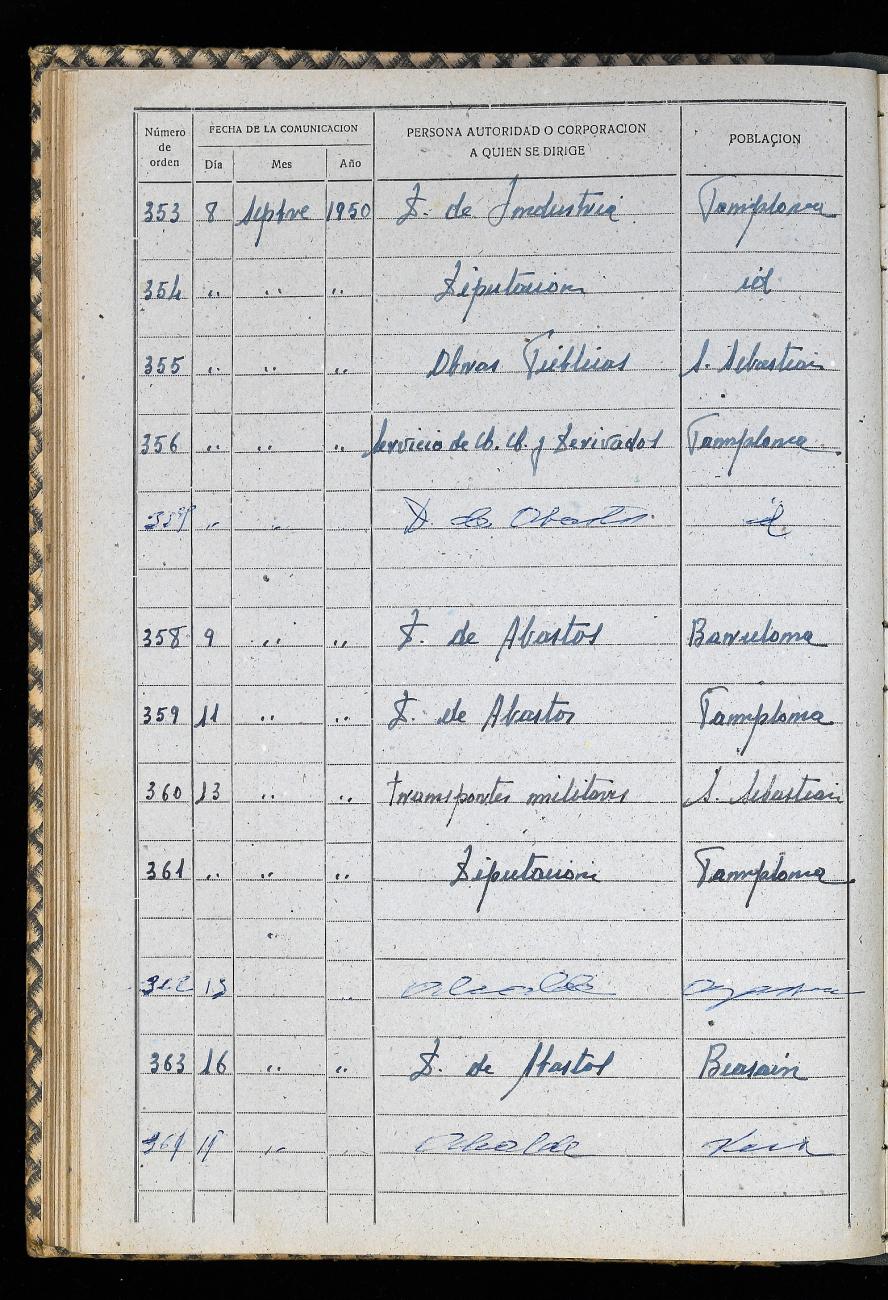 Número de orden
FECHA DE LA COMUNICACION
Día Mes Año
PERSONA AUTORIDAD O CORPORACION
A QUIEN SE DIRIGE
POBLACION
353 8 Sepbre 1950 D. de Industria Pamplona
354 " " " Diputacion id
355 " " " Obras Publicas S. Sebastian
356 " " " Servicio de y Derivados Pamplona
" " D. de Abastos id
358 9 " " D. de Abastos Barcelona
359 11 " " D. de Abastos Pamplona
360 13 " " transportes militares S. Sebastian
361 " " " Diputacion Pamplona
"
362 13 " Alcalde
363 16 " " D. de Abastos Beasain
364 " " Alcalde Vera